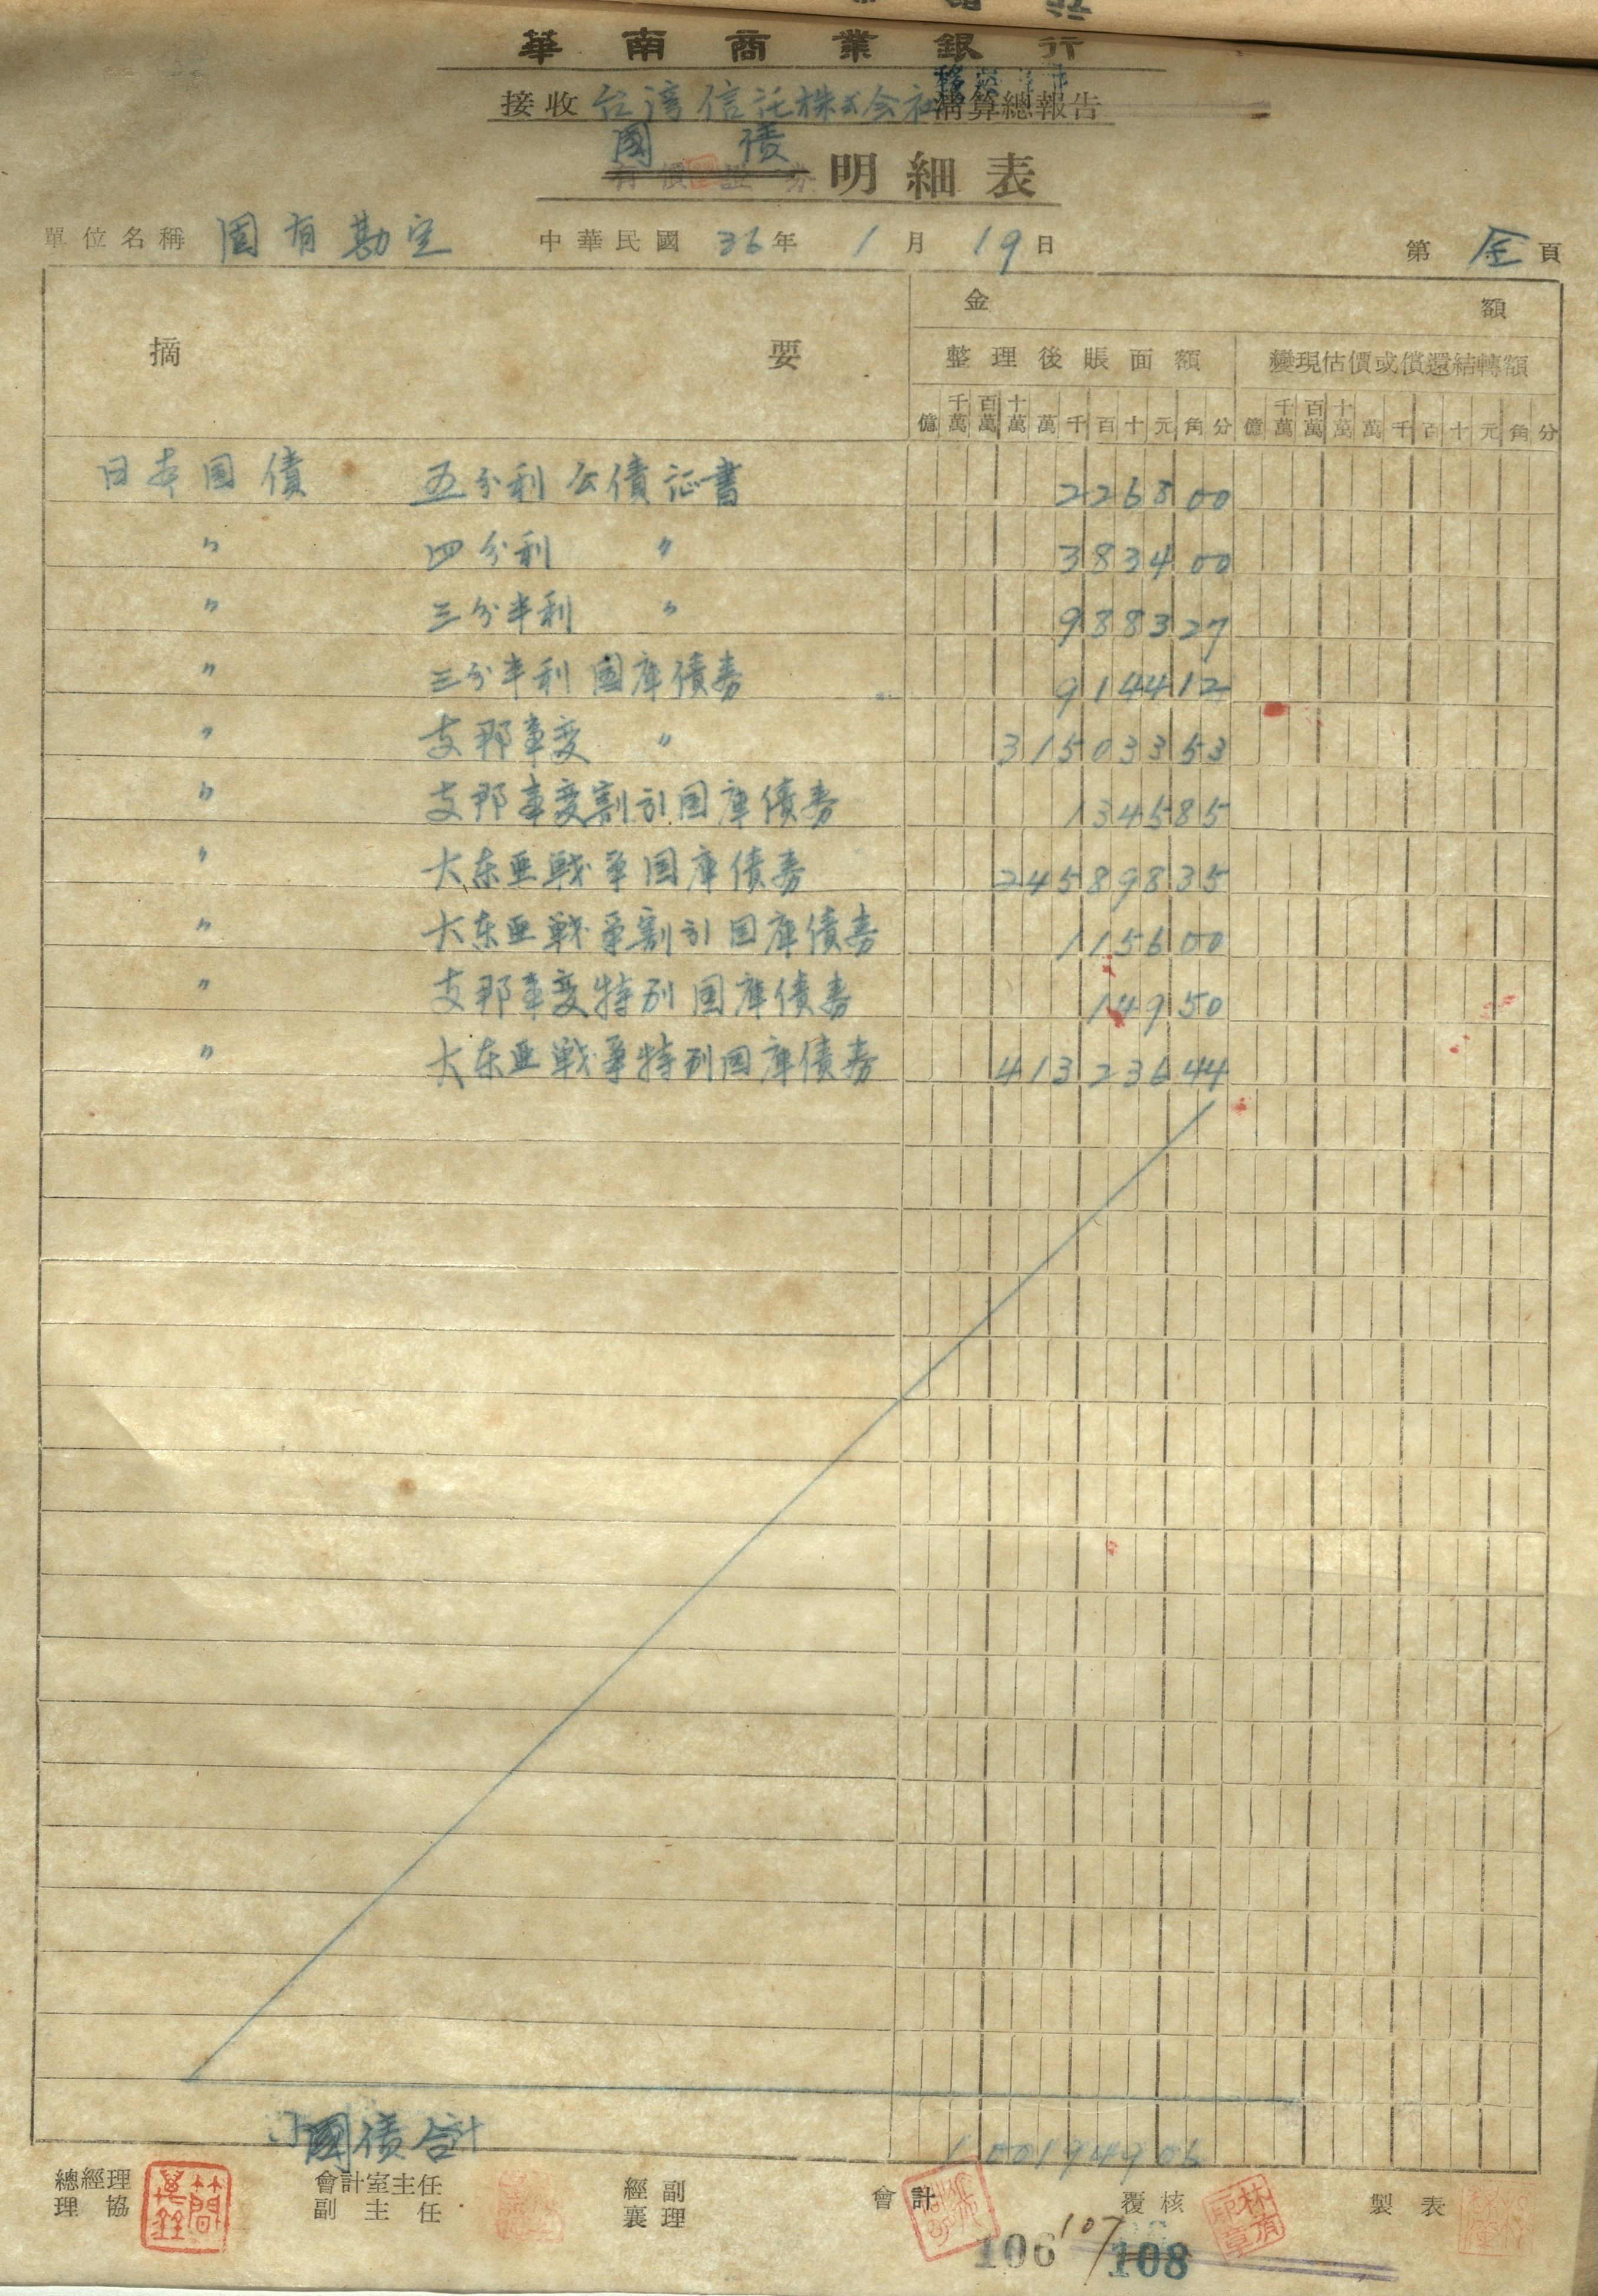 華南商業銀行
接收 台湾信託株式会社 清算總報告
國債 明細表
單位名稱 固有勘定 中華民國 36年 1月 19日 第 全 頁
摘要 金額
整理後賬面額 變現估價或償還結轉額
億 千萬 百萬 十萬 萬 千 百 十 元 角 分 億 千萬 百萬 十萬 萬 千 百 十 元 角 分
日本国債 五分利公債証書 2268 00
〃 四分利 〃 3834 00
〃 三分半利 〃 9883 27
〃 三分半利国庫債券 9144 12
〃 支那事変 〃 315033 53
〃 支那事変割引国庫債券 1345 85
〃 大东亜戦争国庫債券 245898 35
〃 大东亜戦争割引国庫債券 1156 00
〃 支那事変特別国庫債券 149 50
〃 大东亜戦争特別国庫債券 413236 44
國債合計 1001949 06
總經理 協理 會計室主任 副主任 經副襄理 會計 覆核 製表
106 107 108